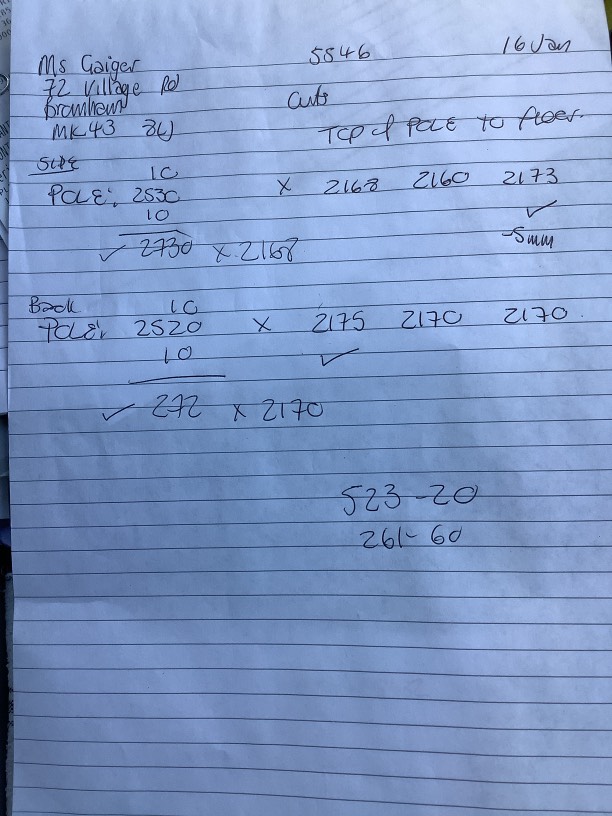 Ms Gaiger 5546 16 Jan
72 Village Rd
Bromham Curts
MK43 TOP of POLE to floor.
SIDE 10
POLE: 2530 x 2168 2160 2173
10 ✓
✓ 2730 x 2168 -5mm
Back 10
POLE: 2520 x 2175 2170 2170
10 ✓
✓ 272 x 2170
523-20
261-60